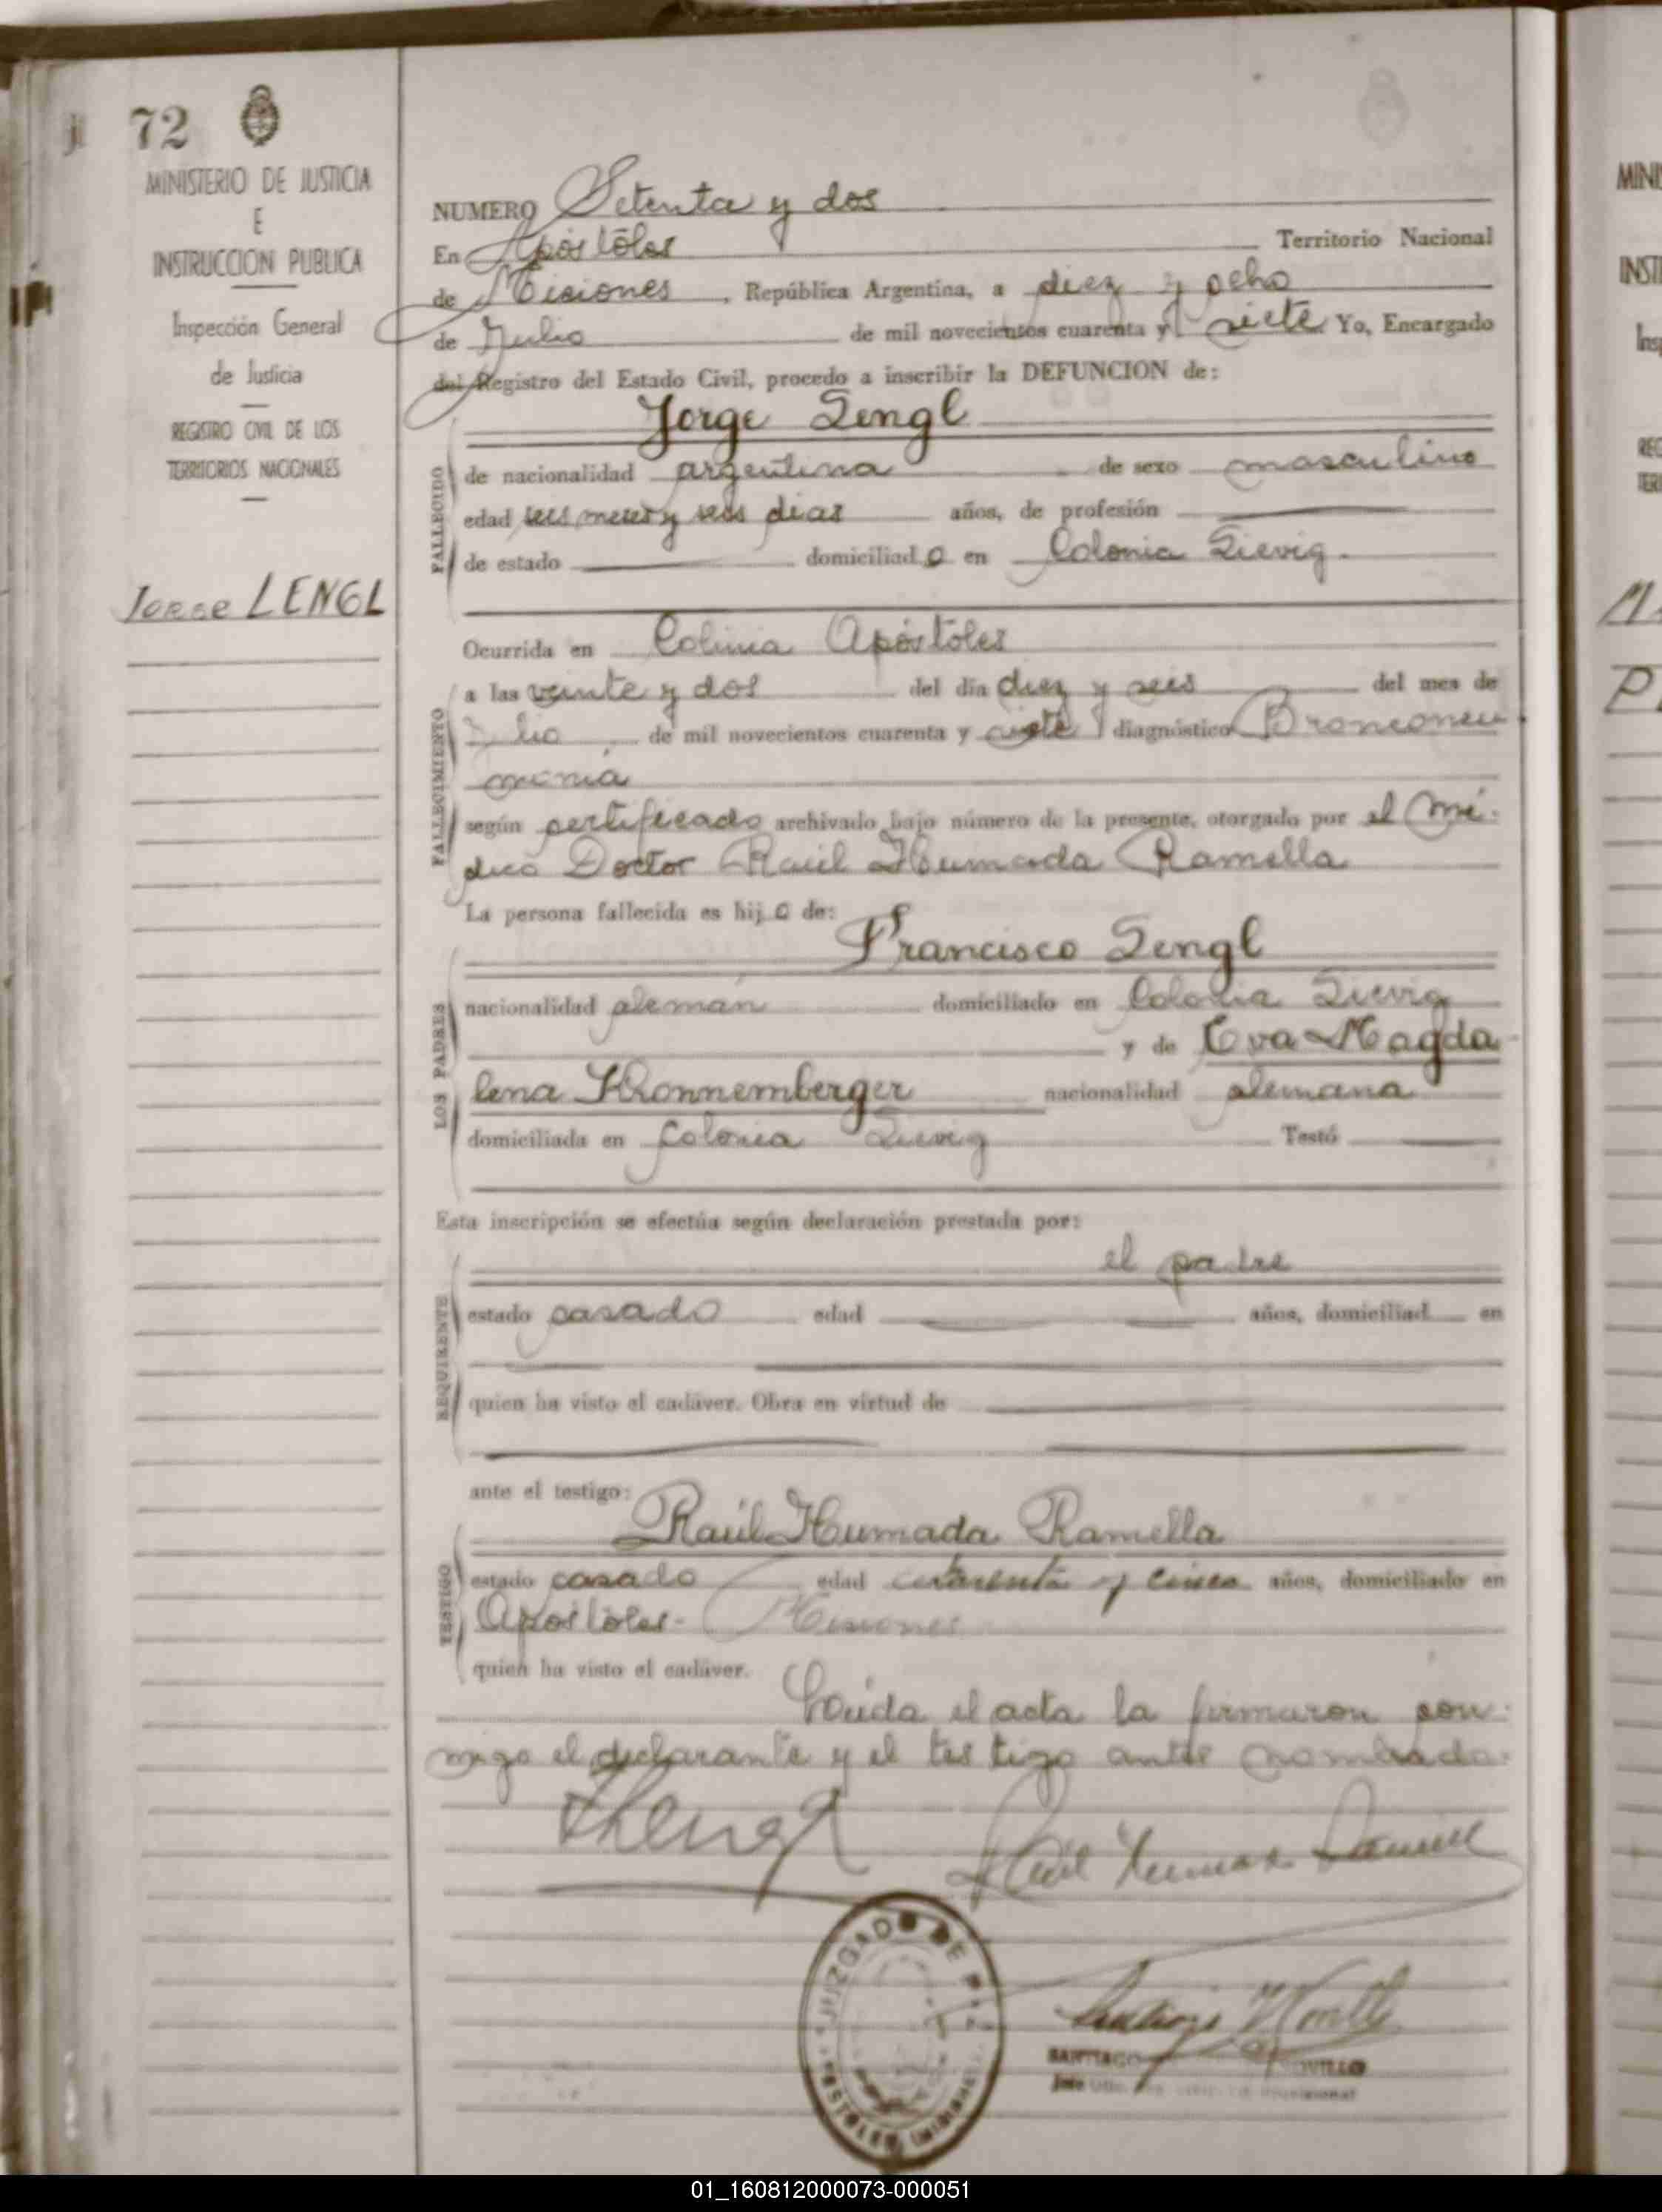 72
MINISTERIO DE JUSTICIA
E
INSTRUCCION PUBLICA
Inspección General
de Justicia
REGISTRO CIVIL DE LOS
TERRITORIOS NACIONALES
Jorge LENGL
NUMERO Setenta y dos
En Apóstoles Territorio Nacional
de Misiones, República Argentina, a diez y ocho
de Julio de mil novecientos cuarenta y siete Yo, Encargado
del Registro del Estado Civil, procedo a inscribir la DEFUNCION de:
Jorge Lengl
FALLECIDO
de nacionalidad argentina de sexo masculino
edad seis meses y seis dias años, de profesión
de estado domiciliado en Colonia Lievig.
Ocurrida en Colinia Apóstoles
FALLECIMIENTO
a las veinte y dos del día diez y seis del mes de
Julio de mil novecientos cuarenta y siete diagnóstico Bronconeu
monia
según certificado archivado bajo número de la presente, otorgado por el Mé-
dico Doctor Raúl Humada Ramella
La persona fallecida es hijo de:
Francisco Lengl
LOS PADRES
nacionalidad alemán domiciliado en Colonia Lievig
y de Eva Magda-
lena Kronnemberger nacionalidad alemana
domiciliada en Colonia Lievig Testó
Esta inscripción se efectúa según declaración prestada por:
el padre
REQUIRENTE
estado casado edad años, domiciliad en
quien ha visto el cadáver. Obra en virtud de
ante el testigo:
Raúl Humada Ramella
TESTIGO
estado casado edad cuarenta y cinco años, domiciliado en
Apóstoles- Misiones
quien ha visto el cadáver.
Leída el acta la firmaron con-
migo el declarante y el testigo antes nombrado.
JUZGADO DE PAZ
APOSTOLES (MISIONES)
SANTIAGO
01_160812000073-000051